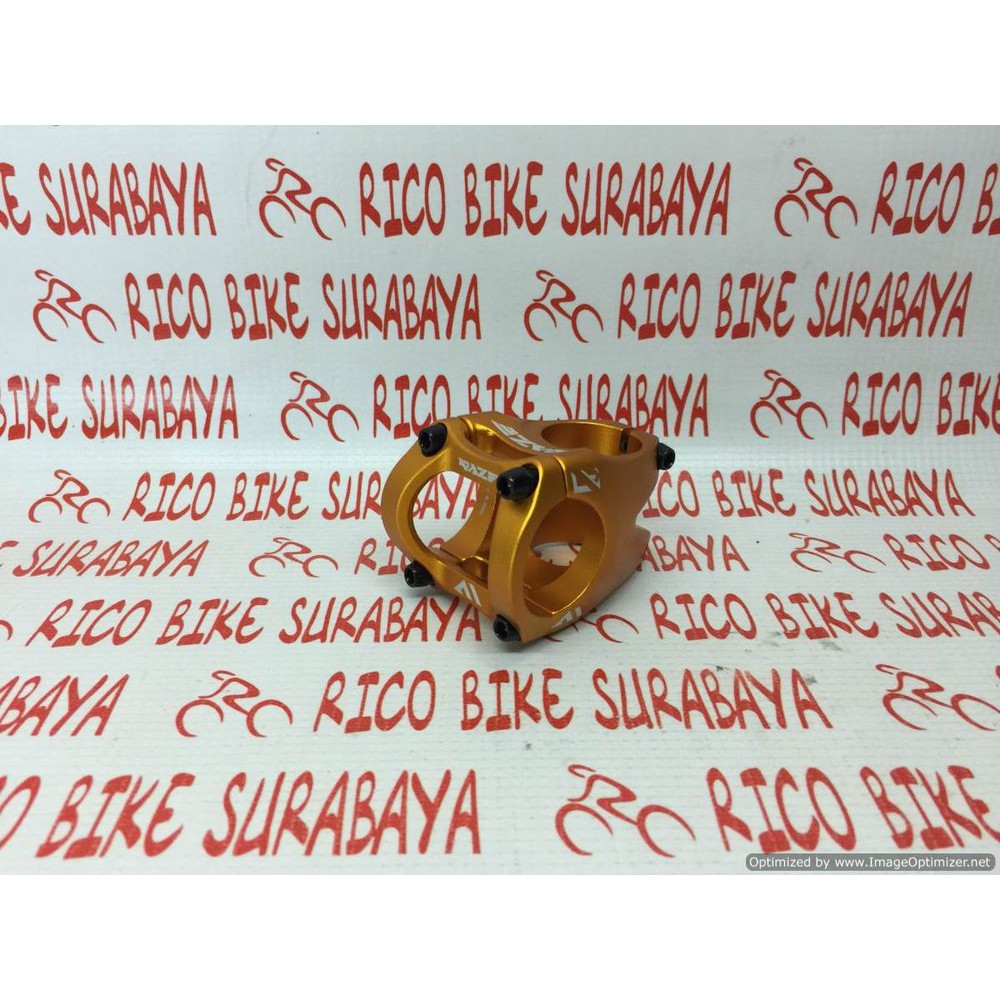 KE SURABAYA RICO BIKE SURABAYA RICO B
RICO BIKE SURABAYA RICO BIKE SURABAYA
BIKE SURABAYA RICO BIKE SURABAYA RICO BIKE
RICO BIKE SURABAYA RICO BIKE
SURABAYA RICO BIKE SURABAYA RICO
RICO BIKE SURABAYA RICO BIKE SURABAYA
BAYA RICO BIKE SURABAYA
O BIKE SURABAYA RICO BIKE
Optimized by www.ImageOptimizer.net